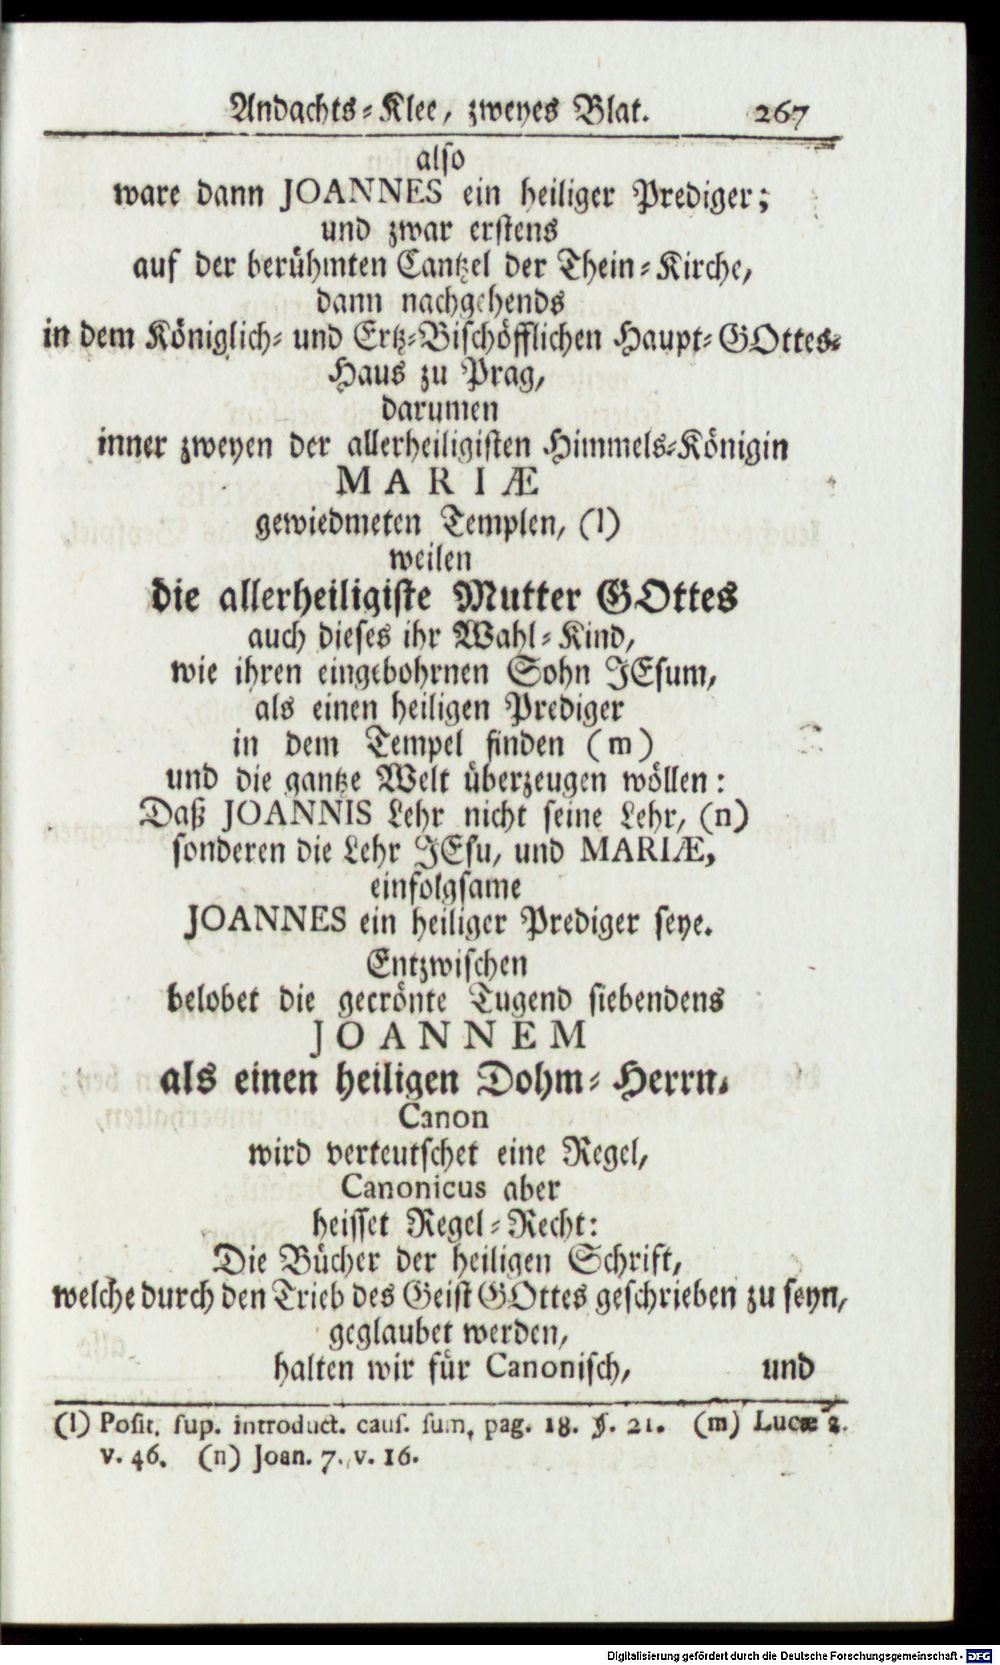 Andachts-Klee, zweyes Blat. 267
also
ware dann JOANNES ein heiliger Prediger;
und zwar erstens
auf der berühmten Cantzel der Thein-Kirche,
dann nachgehends
in dem Königlich- und Ertz-Bischöfflichen Haupt-GOttes-
Haus zu Prag,
darumen
inner zweyen der allerheiligisten Himmels-Königin
MARIÆ
gewiedmeten Templen, (l)
weilen
die allerheiligiste Mutter GOttes
auch dieses ihr Wahl-Kind,
wie ihren eingebohrnen Sohn JEsum,
als einen heiligen Prediger
in dem Tempel finden (m)
und die gantze Welt überzeugen wöllen:
Daß JOANNIS Lehr nicht seine Lehr, (n)
sonderen die Lehr JEsu, und MARIÆ,
einfolgsame
JOANNES ein heiliger Prediger seye.
Entzwischen
belobet die gecrönte Tugend siebendens
JOANNEM
als einen heiligen Dohm-Herrn.
Canon
wird verteutschet eine Regel,
Canonicus aber
heisset Regel-Recht:
Die Bücher der heiligen Schrift,
welche durch den Trieb des Geist GOttes geschrieben zu seyn,
geglaubet werden,
halten wir für Canonisch, und
(l) Posit. sup. introduct. caus. sum. pag. 18. §. 21. (m) Lucæ 2.
v. 46. (n) Joan. 7. v. 16.
Digitalisierung gefördert durch die Deutsche Forschungsgemeinschaft - DFG